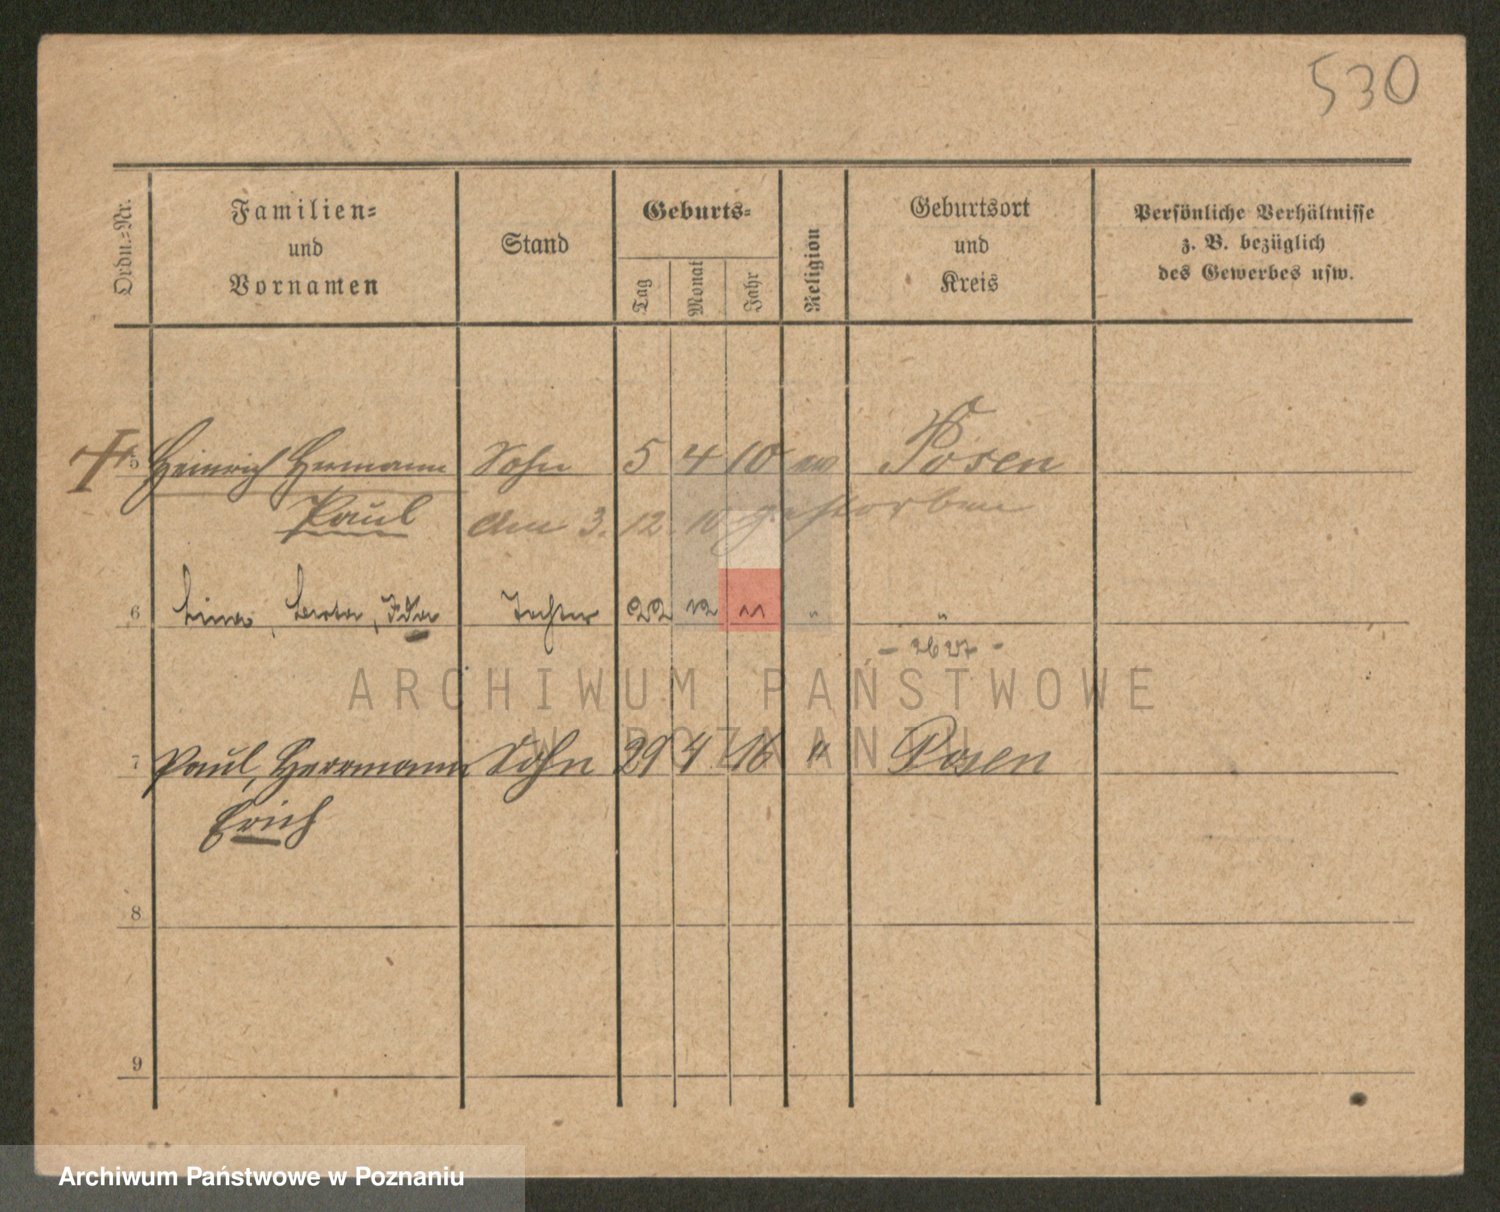 530
Ordn.-Nr.
Familien-
und
Vornamen
Stand
Geburts-
Tag
Monat
Jahr
Religion
Geburtsort
und
Kreis
Persönliche Verhältnisse
z. B. bezüglich
des Gewerbes usw.
5 Heinrich Hermann Sohn 5 4 10 ev Posen
Paul am 3. 12. 10 gestorben
6 Lina, Berta, Ida Tochter 22 12 11 " "
7 Paul, Herrmann Sohn 29 4 16 " Posen
Erich
8
9
ARCHIWUM PAŃSTWOWE
W POZNANIU
Archiwum Państwowe w Poznaniu